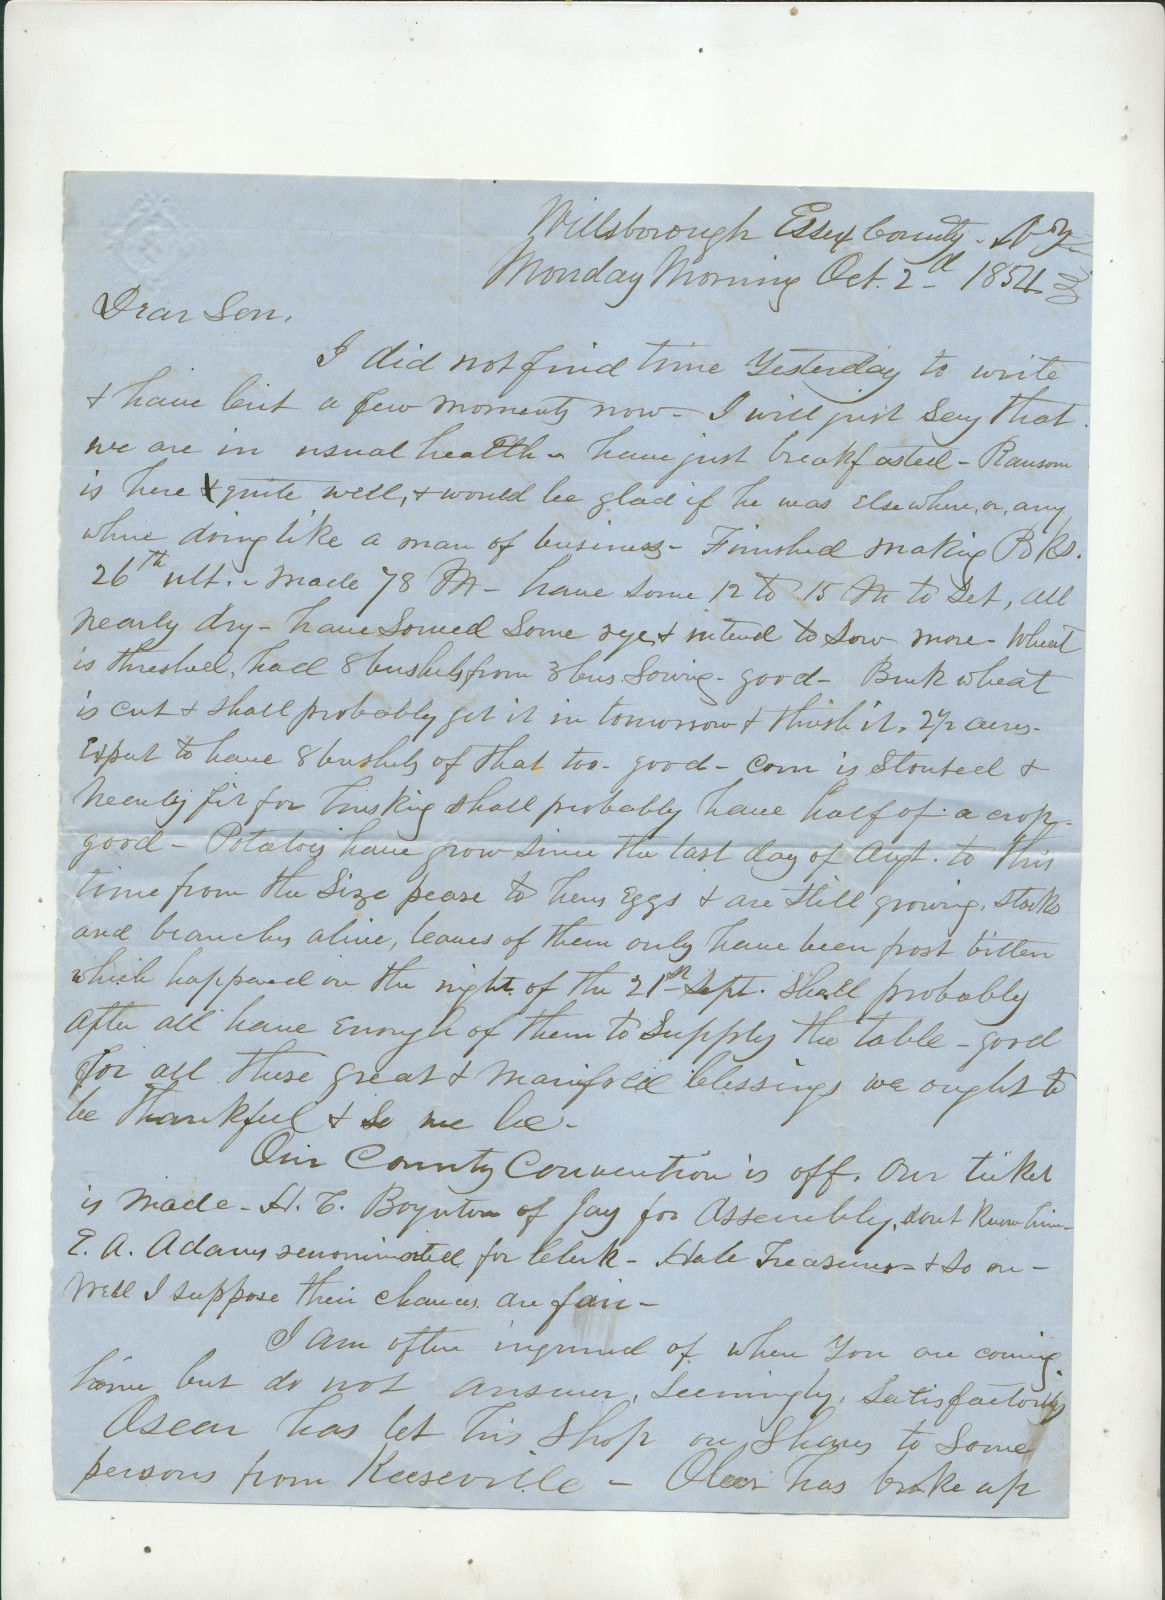 Willsborough Essex County. N.Y.
Monday Morning Oct. 2d 1854
Dear Son,
I did not find time Yesterday to write
& have but a few moments now - I will just say that
we are in usual health - have just breakfasted - Ransom
is here & quite well, & would be glad if he was elsewhere, or, any
where doing like a man of business - Finished making
26th ult. - made 78 M - have some 12 to 15 M to set, all
nearly dry - have sowed some rye & intend to sow more - Wheat
is threshed, had 8 bushels from 3 bus sowing - good - Buckwheat
is cut & shall probably get it in tomorrow & thresh it. 2½ acres -
Expect to have 8 bushels of that too - good - corn is &
nearly fit for husking shall probably have half of a crop -
good - Potatoes have grow since the last day of Augt. to this
time from the size pease to hens Eggs & are still growing, stocks
and branches alive, leaves of them only have been frost bitten
which happened on the night of the 21st Sept. Shall probably
after all have enough of them to supply the table - good
For all these great & manifold blessings we ought to
be thankful & so we be -
Our County Convention is off. Our ticket
is made - H. Boynton of Jay for Assembly, dont know him -
E. A. Adams renominated for Clerk - Hale Treasurer & so on -
Well I suppose their chances are fair -
I am often inquired of when You are coming
home but do not answer, seemingly, satisfactorily
Oscar has let his shop on shares to some
persons from Keeseville - has broke up